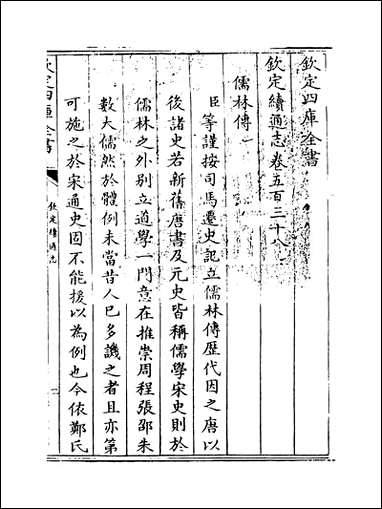 欽定四庫全書
欽定續通志卷五百三十八
儒林傳一
臣等謹按司馬遷史記立儒林傳歴代因之唐以
後諸史若新舊唐書及元史皆稱儒學宋史則於
儒林之外别立道學一門意在推崇周程張邵朱
數大儒然於體例未當昔人已多譏之者且亦第
可施之於宋通史固不能援以為例也今依鄭氏
欽定四庫全書
欽定續通志